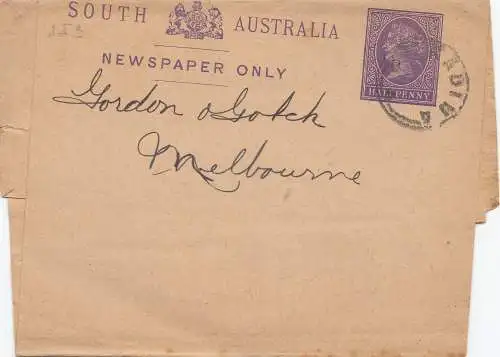 SOUTH AUSTRALIA
NEWSPAPER ONLY
HALFPENNY
Gordon & Gotch
Melbourne